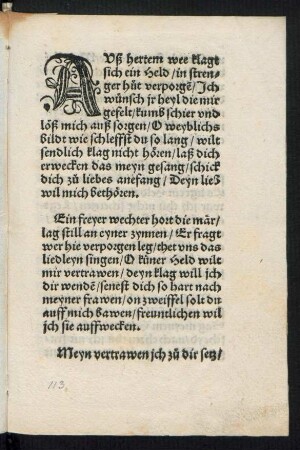 AVß hertem wee klagt
sich ein Held/in stren-
ger hůt verporgē/Ich
wünsch jr heyl die mir
gefelt/kumb schier vnd
löß mich auß sorgen/O weyblichs
bildt wie schleffst du so lang/wilt
sendlich klag nicht hören/laß dich
erwecken das meyn gesäng/schick
dich zů liebes anefang/Deyn lieb
wil mich bethören.
Ein freyer wechter hort die mär/
lag still an eyner zynnen/Er fragt
wer hie verporgen leg/thet vns das
liedleyn singen/O küner Held wilt
mir vertrawen/deyn klag will ich
dir wendē/senest dich so hart nach
meyner frawen/on zweiffel solt du
auff mich bawen/freuntlichen wil
jch sie auffwecken.
Meyn vertrawen jch zů dir setz/
113.